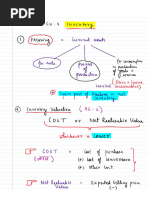 CH:4 Inventory
① Meaning = Current assets
for sale
process of production
for consumption in production of goods & service
② Inventory Valuation (AS-2)
COST or Net Realisable Value
whichever is LOWER
COST = Cost of purchase
+ Cost of conversion
+ Other cost
Net Realisable Value = Expected Selling price